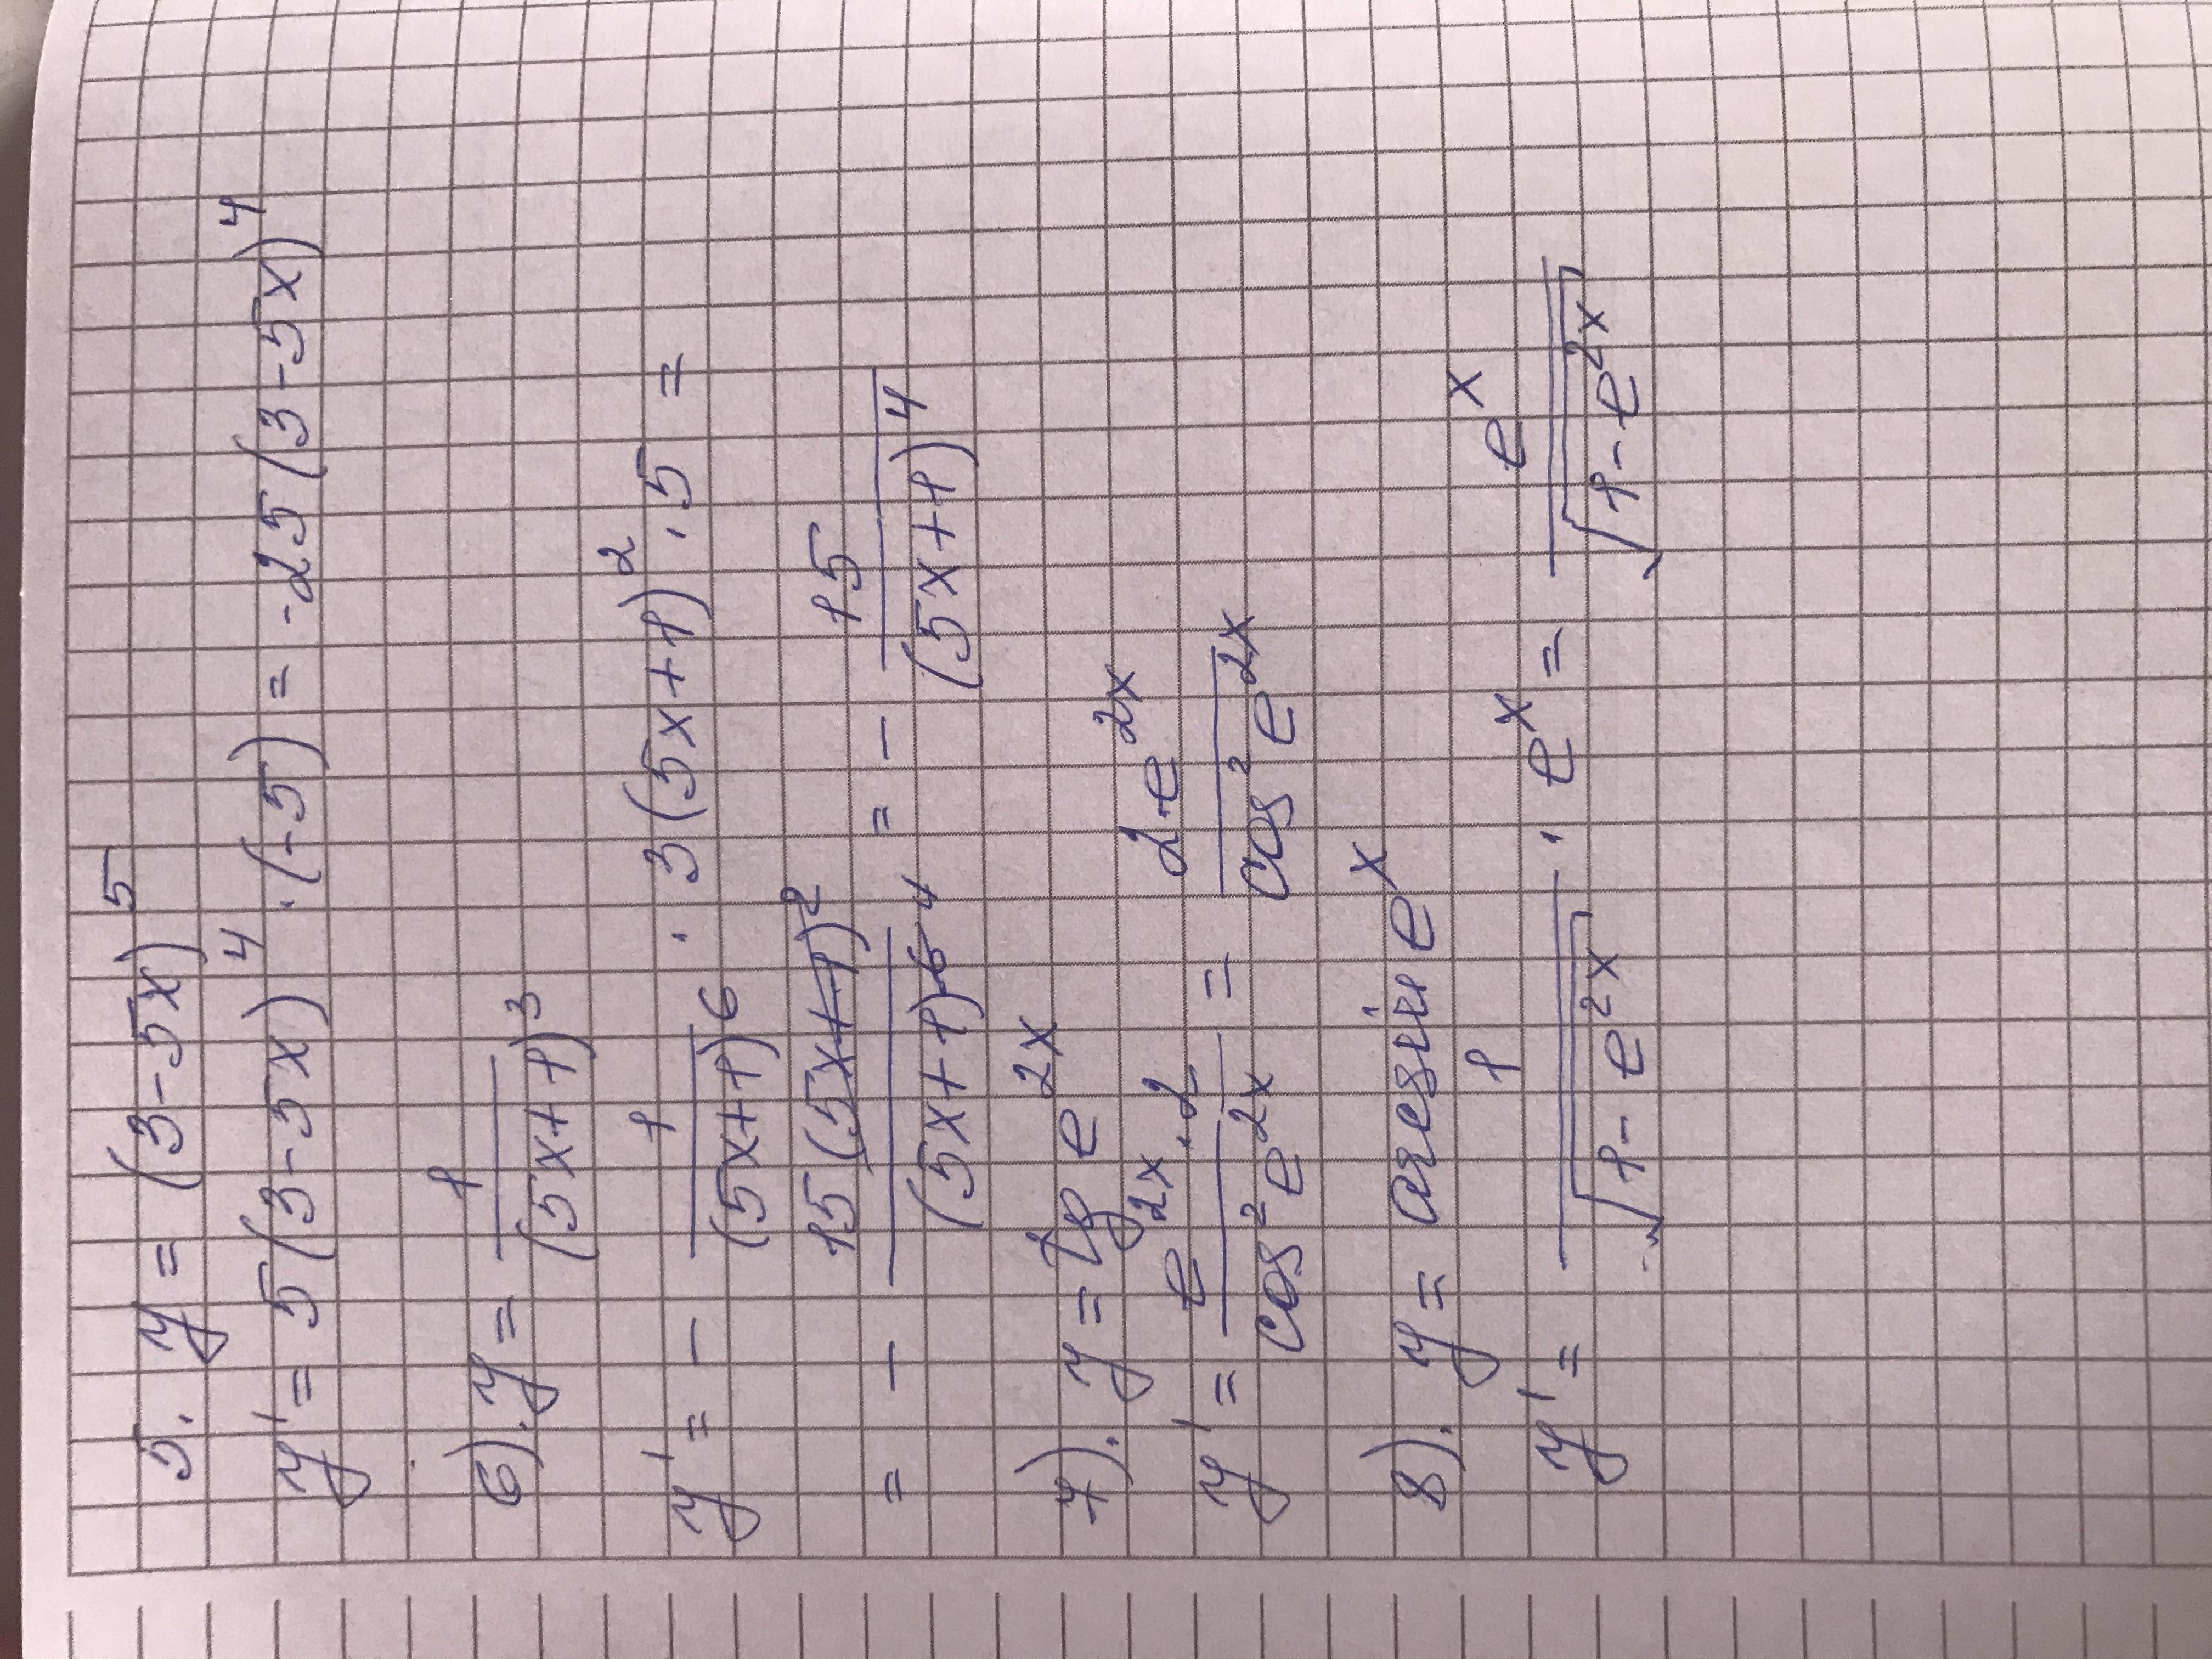 5. y = (3-5x)^5
y' = 5(3-5x)^4 · (-5) = -25(3-5x)^4
6). y = 1/(5x+1)^3
y' = - 1/(5x+1)^6 · 3(5x+1)^2 · 5 =
= - 15(5x+1)^2/(5x+1)^6 4 = - 15/(5x+1)^4
7). y = tg e^2x
y' = e^2x · 2/cos^2 e^2x = 2·e^2x/cos^2 e^2x
8). y = arcsin e^x
y' = 1/√(1-e^2x) · e^x = e^x/√(1-e^2x)